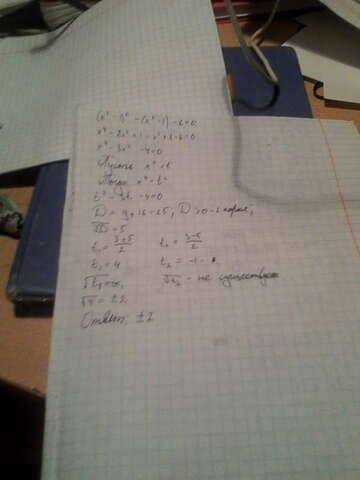 (x² - 1)² - (x² - 1) - 6 = 0
x⁴ - 2x² + 1 - x² + 1 - 6 = 0
x⁴ - 3x² - 4 = 0
Пусть x² = t
Тогда x⁴ = t²
t² - 3t - 4 = 0
D = 9 + 16 = 25, D > 0 - 2 корня,
√D = 5
t₁ = (3+5)/2 t₂ = (3-5)/2
t₁ = 4 t₂ = -1
√t₁ = x, √t₂ - не существует
√4 = ±2
Ответ: ±2